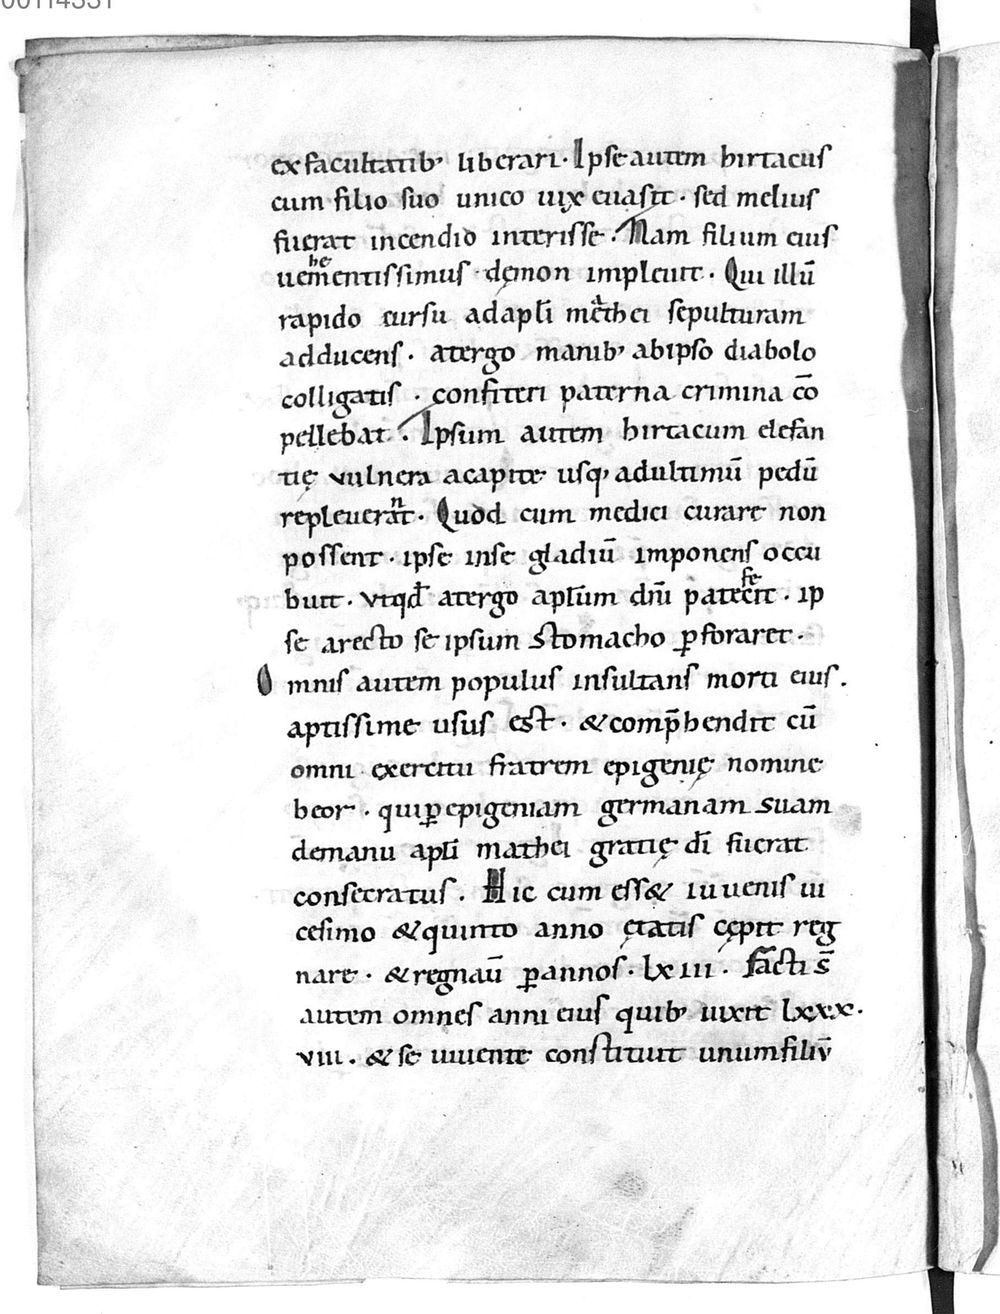 00114331
ex facultatib’ liberari · Ipse autem hirtacus
cum filio suo unico uix euasit · sed melius
fuerat incendio interisse · Nam filium eius
uehementissimus · dęmon impleuit · Qui illū
rapido cursu ad apl̄i mathei sepulturam
adducens · atergo manib’ abipso diabolo
colligatis · confiteri paterna crimina cō
pellebat · Ipsum autem hirtacum elefan
tię vulnera acapite usq’ adultimū pedū
repleuerant · Quod cum medici curare non
possent · ipse inse gladiū imponens occu
buit · vtqd̄ atergo apl̄um dnī patefecit · ip
se arecto se ipsum stomacho ꝑforaret ·
Omnis autem populus insultans morti eius .
aptissime usus est · & comp̄hendit cū
omni exercitu fratrem epigenię nomine
beor · qui ꝑ epigeniam germanam suam
demanu apl̄i mathei gratię dī fuerat
consecratus . Hic cum ess& iuuenis ui
cesimo & quinto anno ętatis cępit reg
nare · & regnaū ꝑ annos · lxiii · facti s̄
autem omnes anni eius quib’ uixit lxxx ·
viii . & se uiuente constituit unum filiū